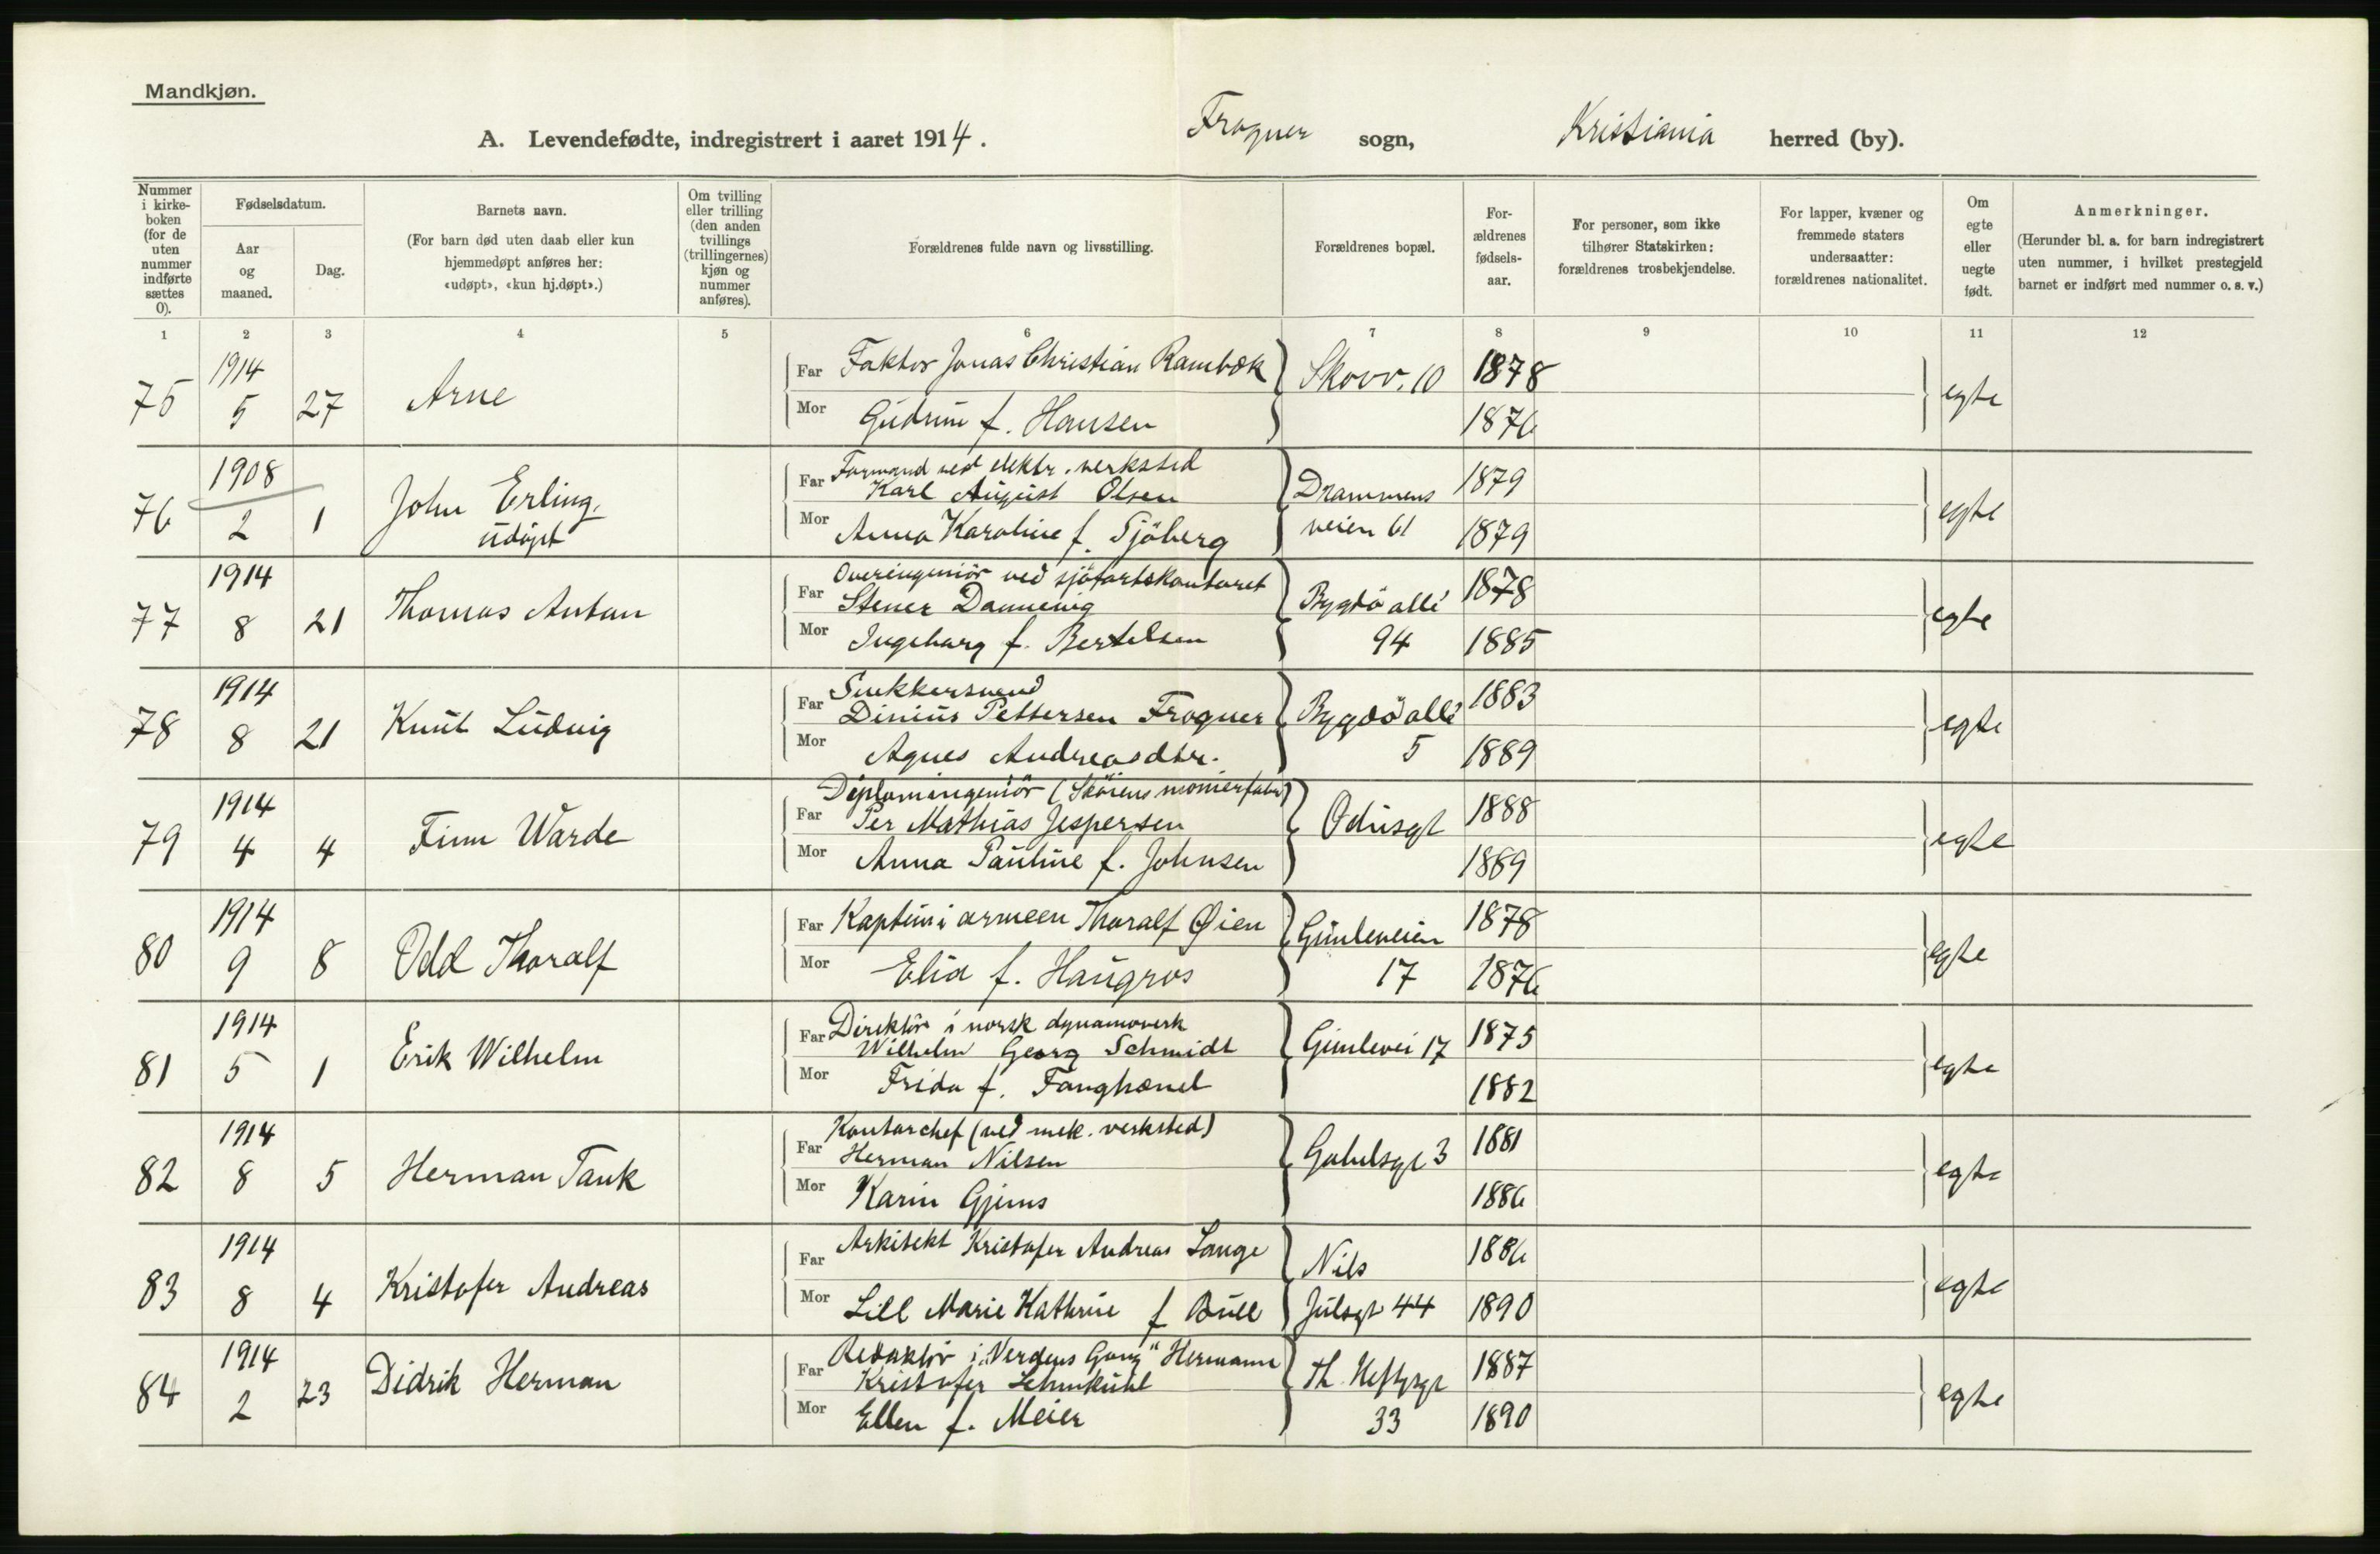 Mandkjøn.
A. Levendefødte, indregistrert i aaret 1914. Frogner sogn, Kristiania herred (by).
Nummer i kirke-boken (for de uten nummer indførte sættes 0).
Fødselsdatum.
Aar og maaned.
Dag.
Barnets navn.
(For barn død uten daab eller kun hjemmedøpt anføres her: «udøpt», «kun hj.døpt».)
Om tvilling eller trilling (den anden tvillings (trillingernes) kjøn og nummer anføres).
Forældrenes fulde navn og livsstilling.
Forældrenes bopæl.
For-ældrenes fødsels-aar.
For personer, som ikke tilhører Statskirken: forældrenes trosbekjendelse.
For lapper, kvæner og fremmede staters undersaatter: forældrenes nationalitet.
Om egte eller uegte født.
Anmerkninger.
(Herunder bl. a. for barn indregistrert uten nummer, i hvilket prestegjeld barnet er indført med nummer o. s. v.)
1 2 3 4 5 6 7 8 9 10 11 12
75 1914 5 27 Arne
Far Faktor Jonas Christian Rambæk Skovv. 10 1878
Mor Gudrun f. Hansen 1876 egte
76 1908 2 1 John Erling. udøpt
Far Formand ved elektr. verksted
Karl August Olsen Drammens 1879
Mor Anna Karoline f. Sjöberg veien 61 1879 egte
77 1914 8 21 Thomas Anton
Far Overingeniör ved sjöfartskontoret
Stener Dannevig Bygdö allé 1878
Mor Ingeborg f. Bertelsen 94 1885 egte
78 1914 8 21 Knut Ludvig
Far Snekkersvend
Dinius Pettersen Frogner Bygdö allé 1883
Mor Agnes Andreasdtr. 5 1889 egte
79 1914 4 4 Finn Warde
Far Diplomingeniör (Skøiens monierfabr)
Per Mathias Jespersen Odinsgt 1888
Mor Anna Pauline f. Johnsen 1889 egte
80 1914 9 8 Odd Thoralf
Far Kaptein i armeen Thoralf Øien Gimleveien 1878
Mor Elia f. Haugros 17 1876 egte
81 1914 5 1 Erik Wilhelm
Far Direktör i norsk dynamoverk
Wilhelm Georg Schmidt Gimlevei 17 1875
Mor Frida f. Fanghænel 1882 egte
82 1914 8 5 Herman Tank
Far Kontorchef (ved mek. verksted)
Herman Nilsen Gabelsgt 3 1881
Mor Karin Gjems 1886 egte
83 1914 8 4 Kristofer Andreas
Far Arkitekt Kristofer Andreas Lange Nils 1886
Mor Lill Marie Kathrine f Bull Julsgt 44 1890 egte
84 1914 2 23 Didrik Herman
Far Redaktör i „Verdens Gang" Hermann
Kristofer Lehmkuhl Th. Heftysgt 1887
Mor Ellen f. Meier 33 1890 egte